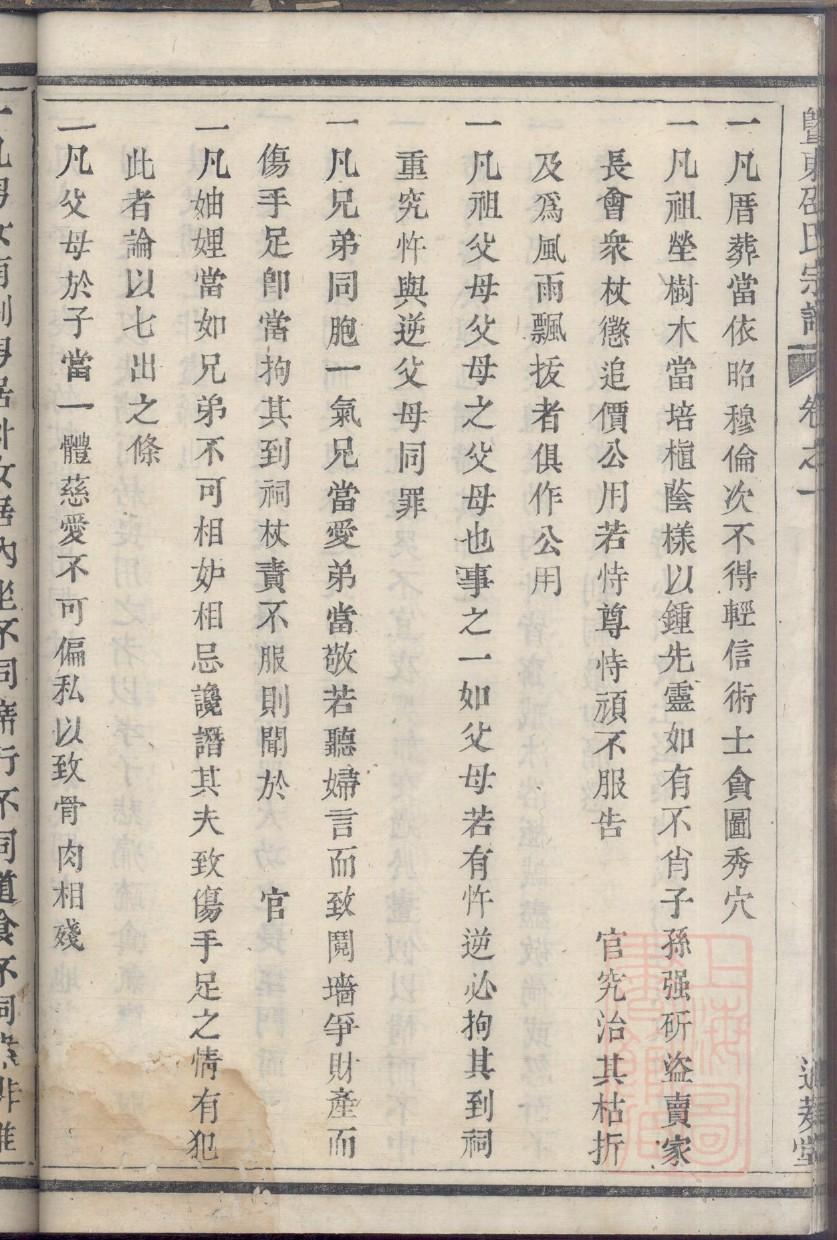 暨東邵氏宗譜 卷之一
一凡厝葬當依昭穆倫次不得輕信術士貪圖秀穴
一凡祖塋樹木當培植蔭樣以鍾先靈如有不肖子孫强斫盜賣家
長會衆杖懲追價公用若恃尊恃頑不服告 官究治其枯折
及爲風雨飄拔者俱作公用
一凡祖父母父母之父母也事之一如父母若有忤逆必拘其到祠
重究忤與逆父母同罪
一凡兄弟同胞一氣兄當愛弟當敬若聽婦言而致鬩墻爭財產而
傷手足卽當拘其到祠杖責不服則聞於 官
一凡妯娌當如兄弟不可相妒相忌讒譖其夫致傷手足之情有犯
此者論以七出之條
一凡父母於子當一體慈愛不可偏私以致骨肉相殘
一凡男女有別男居外女居內坐不同席行不同道食不同
上海圖書館藏